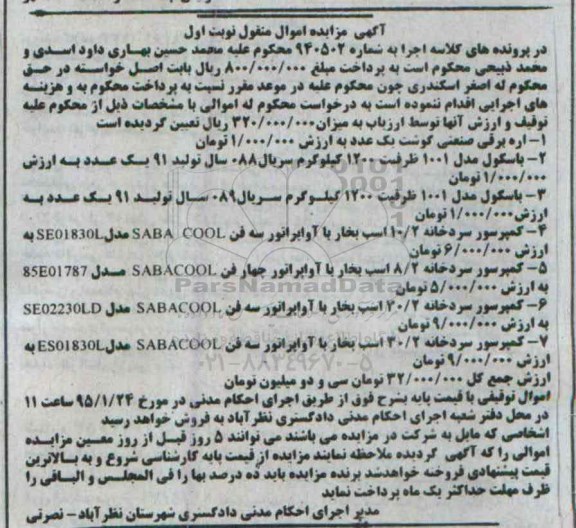 آگهی مزایده اموال منقول نوبت اول
در پرونده های کلاسه اجرا به شماره ۹۴۰۵۰۲ محکوم علیه محمد حسین بهاری داود اسدی و
محمد ذبیحی محکوم است به پرداخت مبلغ ۸۰۰/۰۰۰/۰۰۰ ریال بابت اصل خواسته در حق
محکوم له اصغر اسکندری چون محکوم علیه در موعد مقرر نسبت به پرداخت محکوم به و هزینه
های اجرایی اقدام ننموده است به درخواست محکوم له اموالی با مشخصات ذیل از محکوم علیه
توقیف و ارزش آنها توسط ارزیاب به میزان ۳۲۰/۰۰۰/۰۰۰ ریال تعیین گردیده است
۱- اره برقی صنعتی گوشت یک عدد به ارزش ۱/۰۰۰/۰۰۰ تومان
۲- باسکول مدل ۱۰۰۱ ظرفیت ۱۲۰۰ کیلوگرم سریال ۰۸۸ سال تولید ۹۱ یک عدد به ارزش
۱/۰۰۰/۰۰۰ تومان
۳- باسکول مدل ۱۰۰۱ ظرفیت ۱۲۰۰ کیلوگرم سریال ۰۸۹ سال تولید ۹۱ یک عدد به
ارزش ۱/۰۰۰/۰۰۰ تومان
۴- کمپرسور سردخانه ۱۰/۲ اسب بخار با آواپراتور سه فن SABA COOL مدل SE01830L به
ارزش ۶/۰۰۰/۰۰۰ تومان
۵- کمپرسور سردخانه ۸/۲ اسب بخار با آواپراتور چهار فن SABACOOL مدل 85E01787
به ارزش ۵/۰۰۰/۰۰۰ تومان
۶- کمپرسور سردخانه ۲۰/۲ اسب بخار با آواپراتور سه فن SABACOOL مدل SE02230LD
به ارزش ۹/۰۰۰/۰۰۰ تومان
۷- کمپرسور سردخانه ۳۰/۲ اسب بخار با آواپراتور سه فن SABACOOL مدل ES01830L به
ارزش ۹/۰۰۰/۰۰۰ تومان
ارزش جمع کل ۳۲/۰۰۰/۰۰۰ تومان سی و دو میلیون تومان
اموال توقیفی با قیمت پایه بشرح فوق از طریق اجرای احکام مدنی در مورخ ۹۵/۱/۲۴ ساعت ۱۱
در محل دفتر شعبه اجرای احکام مدنی دادگستری نظرآباد به فروش خواهد رسید
اشخاصی که مایل به شرکت در مزایده می باشند می توانند ۵ روز قبل از روز معین مزایده
اموالی را که آگهی گردیده ملاحظه نمایند مزایده از قیمت پایه کارشناسی شروع و به بالاترین
قیمت پیشنهادی فروخته خواهدشد برنده مزایده باید ده درصد بها را فی المجلس و الباقی را
ظرف مهلت حداکثر یک ماه پرداخت نماید
مدیر اجرای احکام مدنی دادگستری شهرستان نظرآباد - نصرتی
ParsNamadData
۰۲۱-۸۸۳۴۹۶۷۰-۵